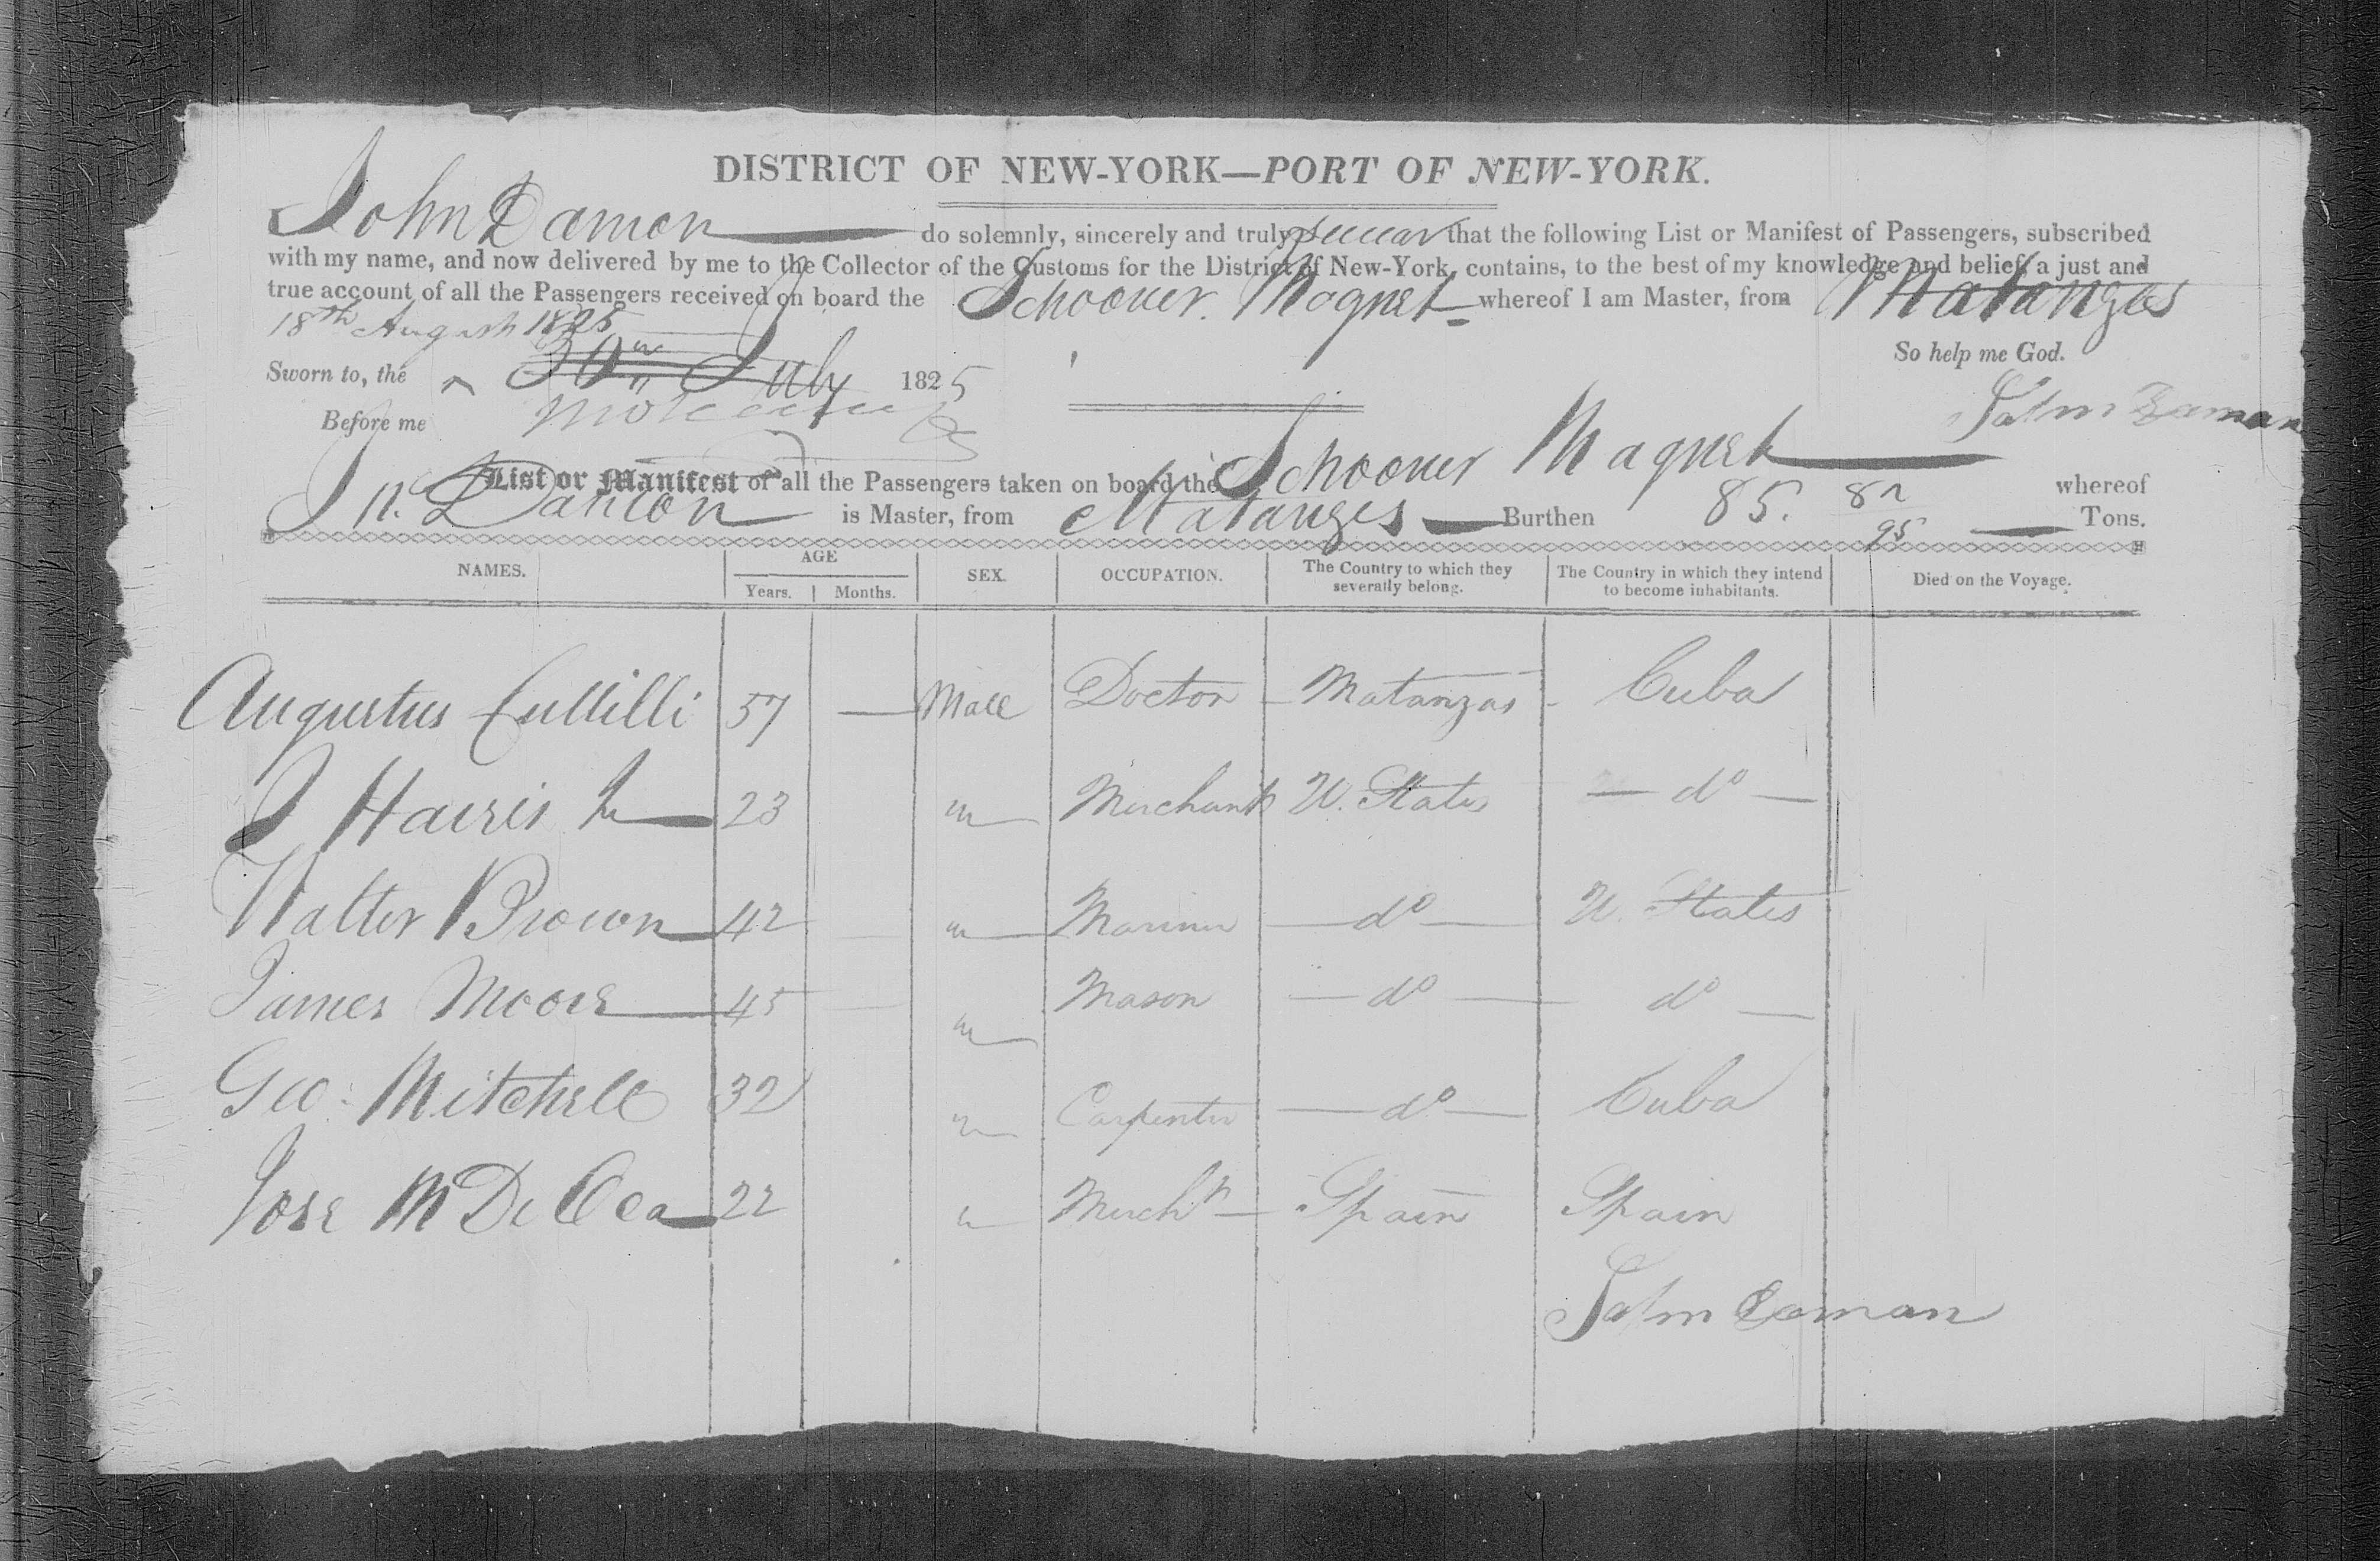 DISTRICT OF NEW-YORK—PORT OF NEW-YORK.
John Damon do solemnly, sincerely and truly swear that the following List or Manifest of Passengers, subscribed
with my name, and now delivered by me to the Collector of the Customs for the District of New-York, contains, to the best of my knowledge and belief, a just and
true account of all the Passengers received on board the Schooner Magnet whereof I am Master, from Matanzas
18th August 1825
So help me God.
Sworn to, the 30th July 1825
John Daman
Before me
List or Manifest of all the Passengers taken on board the Schooner Magnet whereof
Jn. Damon is Master, from Matanzas Burthen 85. 82/95 Tons.
NAMES. AGE Years. Months. SEX. OCCUPATION. The Country to which they severally belong. The Country in which they intend to become inhabitants. Died on the Voyage.
Augustus 57 — Male Doctor — Matanzas - Cuba
J Harris Jr 23 m Merchant U. States — do —
Walter Brown 42 m Mariner — do — U. States
James Moore 45 m Mason — do — do —
Geo: Mitchell 32 m Carpenter — do — Cuba
Jose M De Cea 22 m Mercht — Spain Spain
John Daman